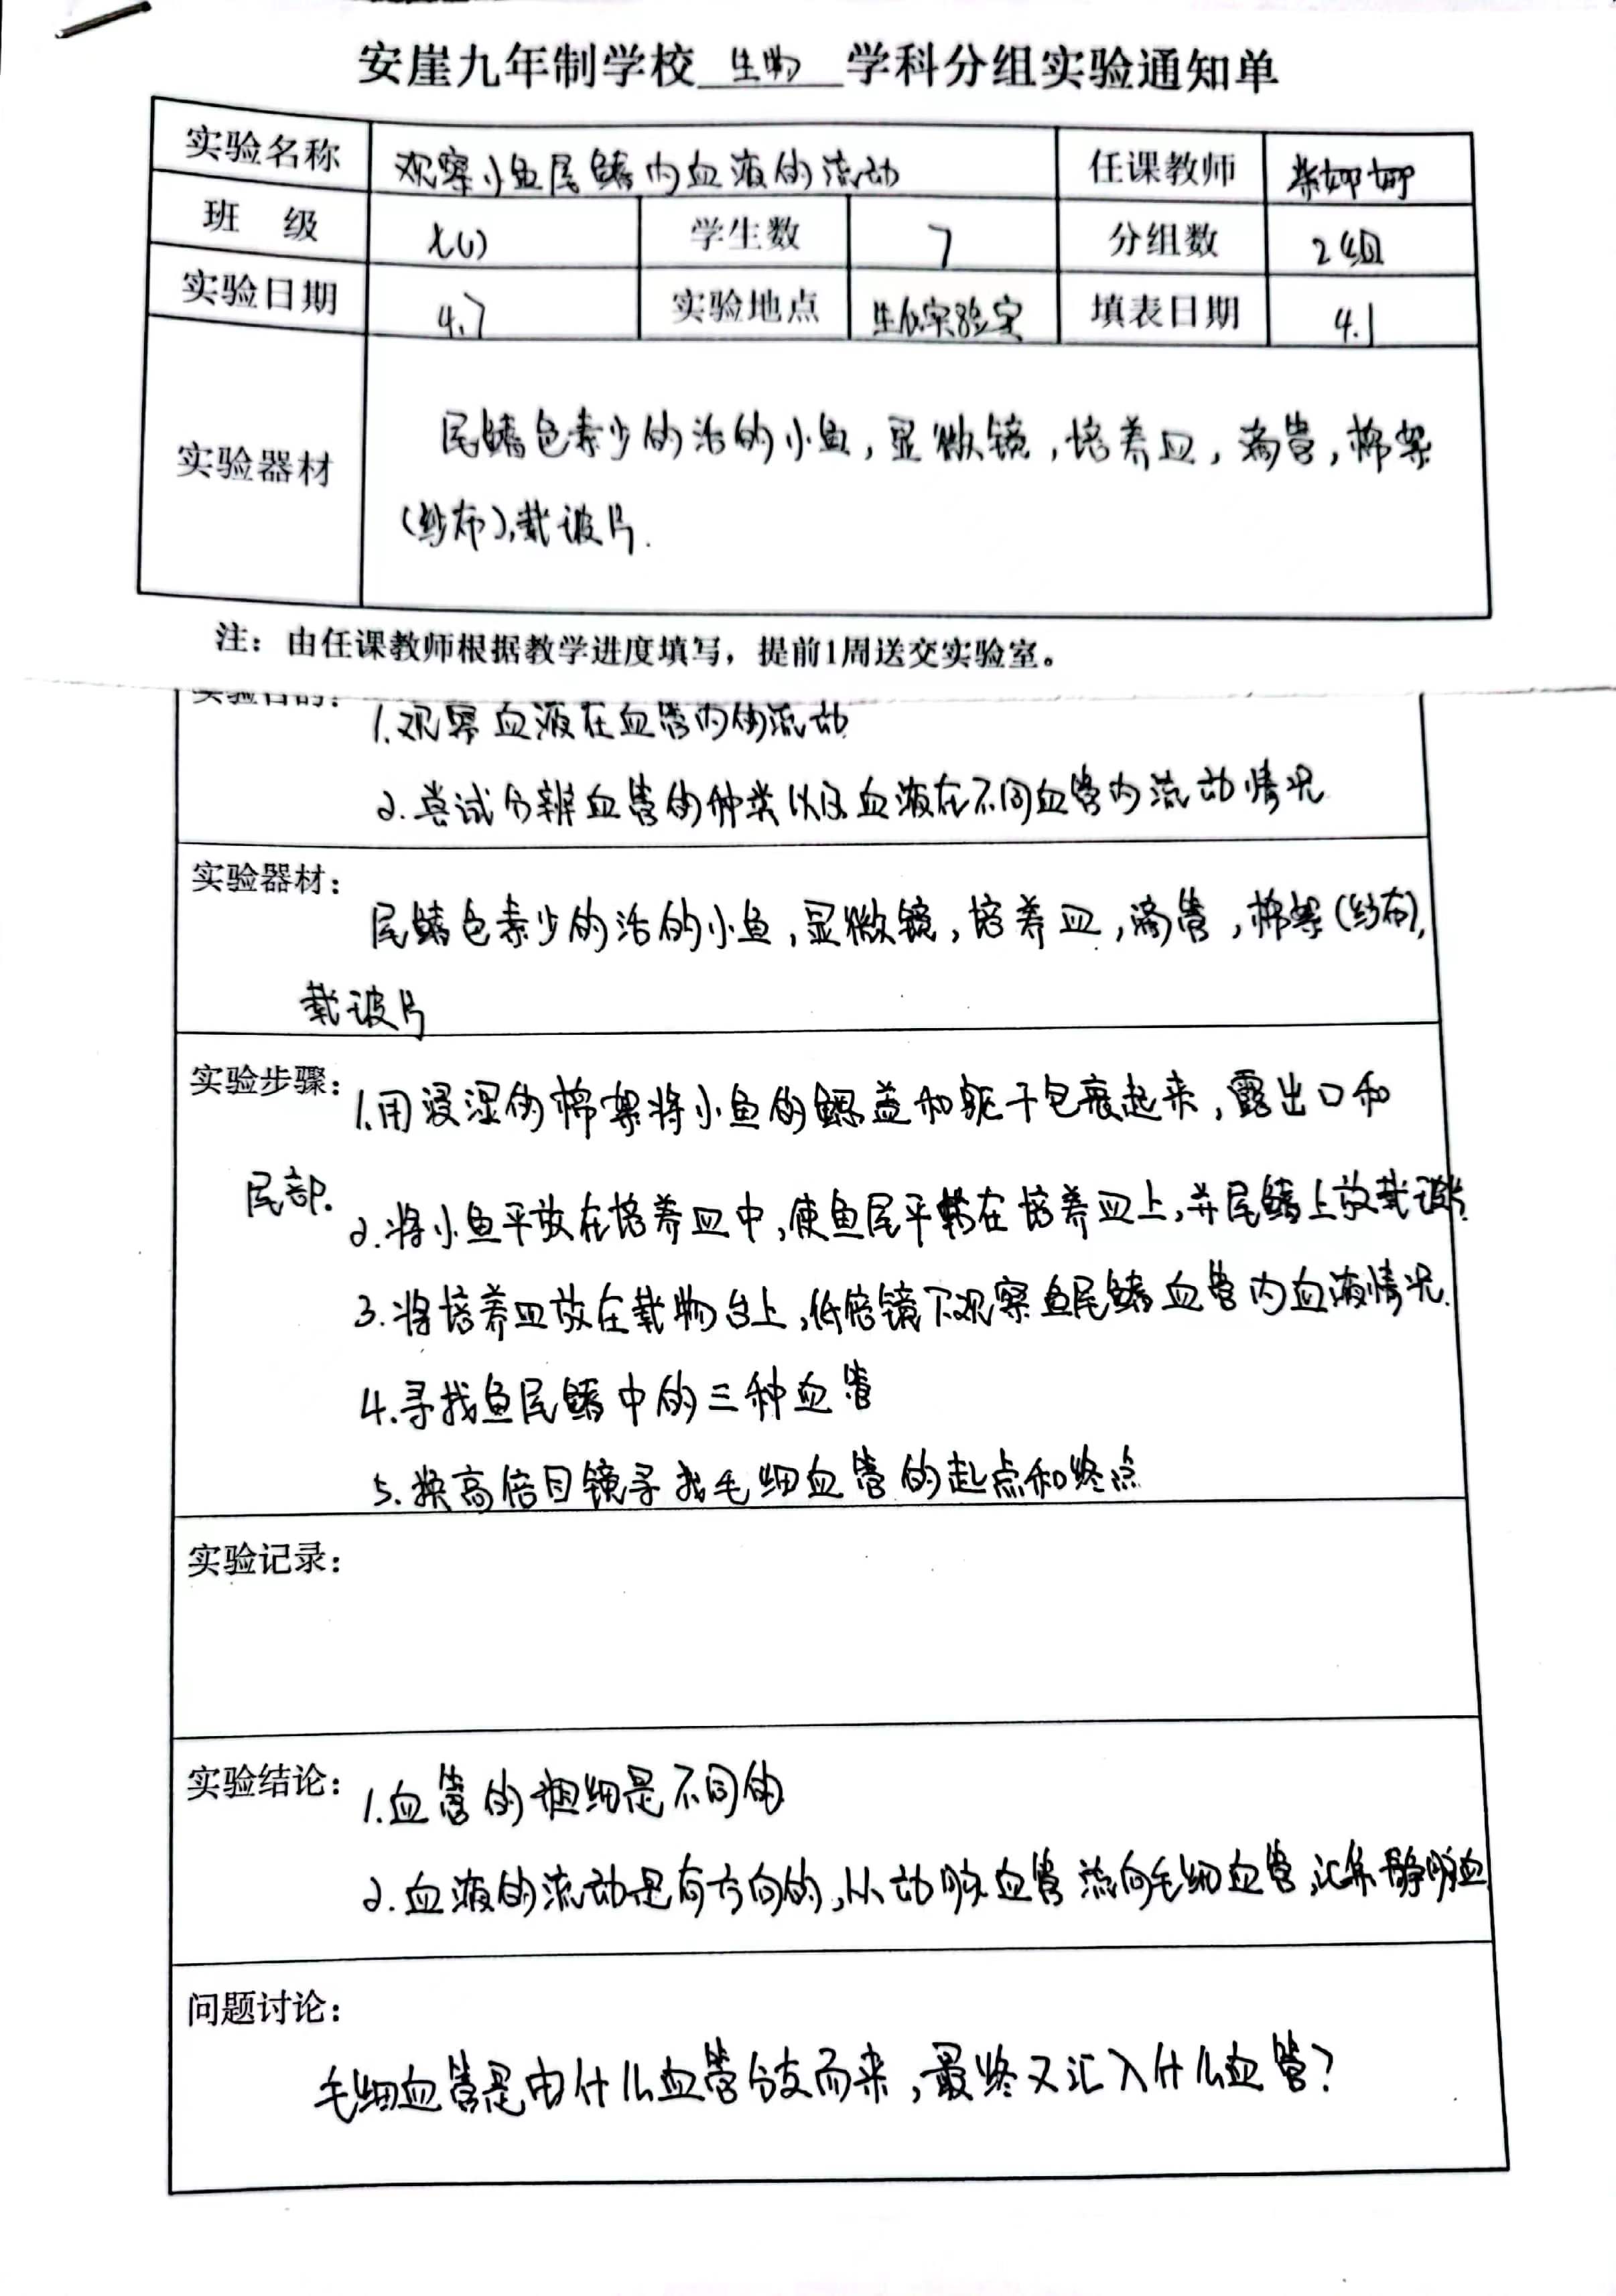 安崖九年制学校 生物 学科分组实验通知单
实验名称 观察小鱼尾鳍内血液的流动 任课教师 娜娜
班 级 七(1) 学生数 7 分组数 2组
实验日期 4.7 实验地点 生化实验室 填表日期 4.1
实验器材 尾鳍色素少的活的小鱼,显微镜,培养皿,滴管,棉絮
(纱布),载玻片.
注:由任课教师根据教学进度填写,提前1周送交实验室。
实验目的: 1.观察血液在血管内的流动
2.尝试分辨血管的种类以及血液在不同血管内流动情况
实验器材:
尾鳍色素少的活的小鱼,显微镜,培养皿,滴管,棉絮(纱布),
载玻片
实验步骤: 1.用浸湿的棉絮将小鱼的鳃盖和躯干包裹起来,露出口和
尾部.
2.将小鱼平放在培养皿中,使鱼尾平躺在培养皿上,并尾鳍上放载玻片.
3.将培养皿放在载物台上,低倍镜下观察鱼尾鳍血管内血液情况.
4.寻找鱼尾鳍中的三种血管
5.换高倍目镜寻找毛细血管的起点和终点
实验记录:
实验结论: 1.血管的粗细是不同的
2.血液的流动是有方向的,从动脉血管流向毛细血管,汇集静脉血
问题讨论:
毛细血管是由什么血管分支而来,最终又汇入什么血管?